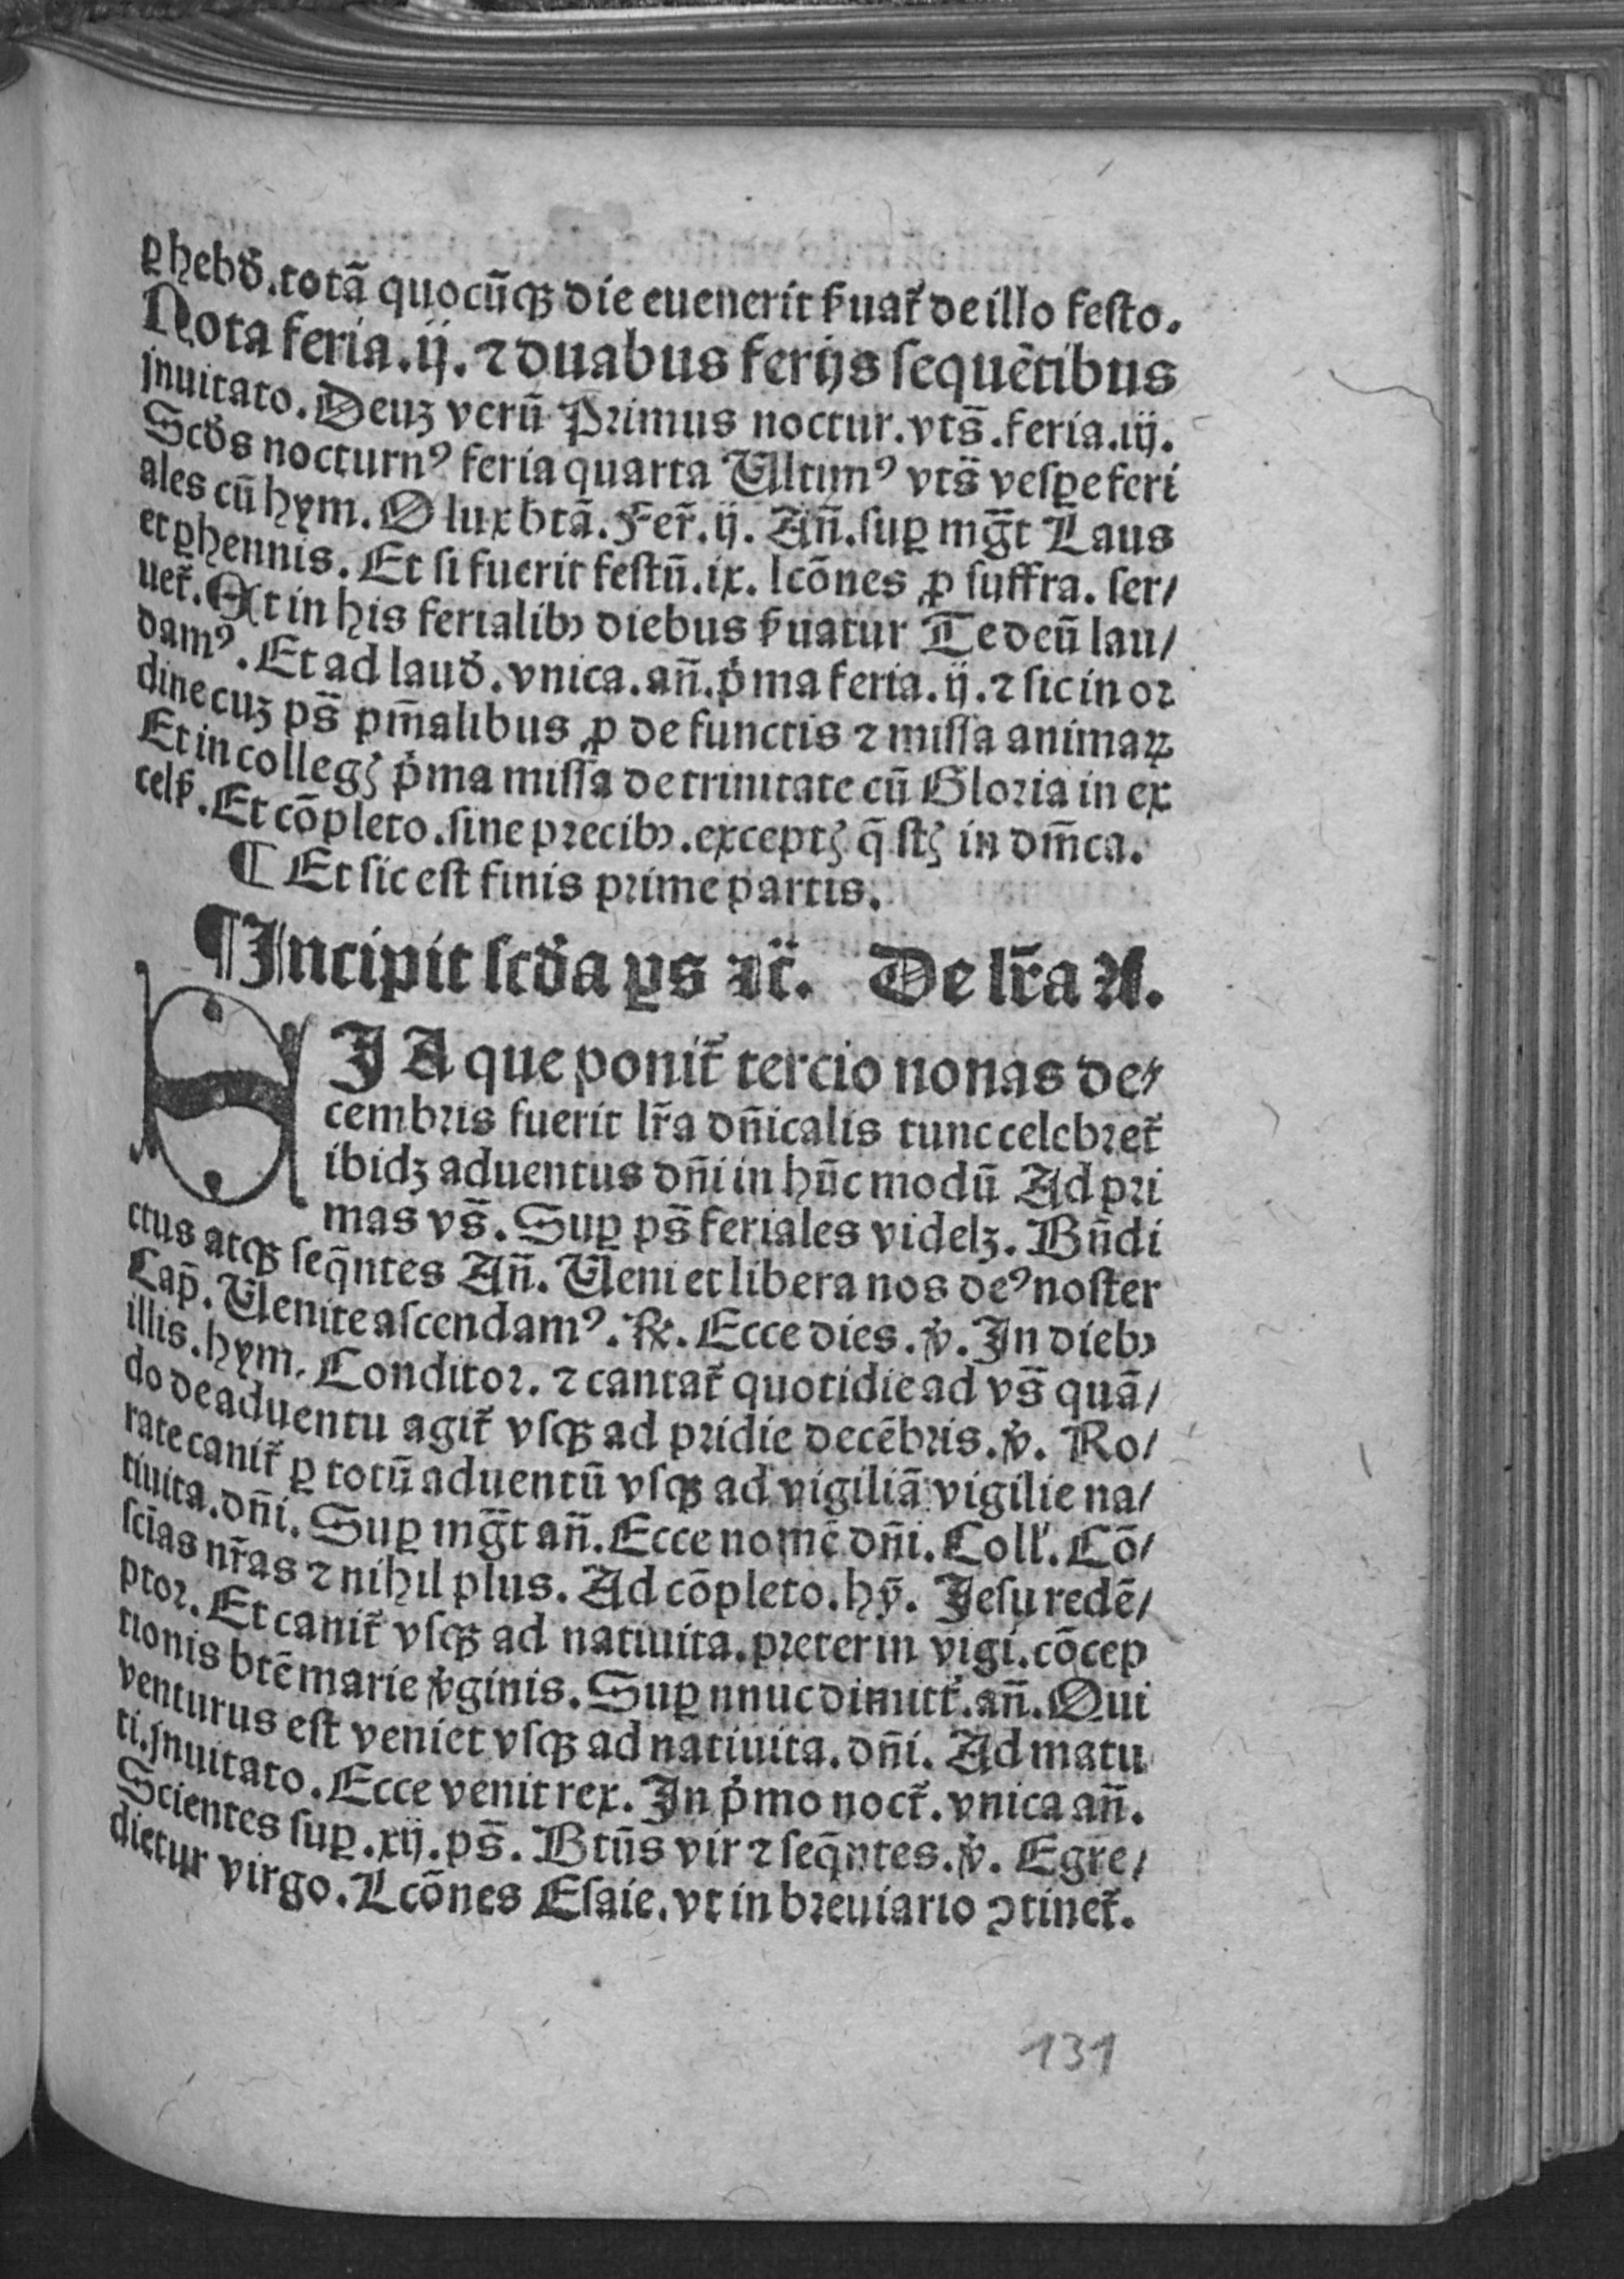 ꝑ hebđ. totā quocūqꝫ die euenerit ẜuat᷑ de illo festo.
Nota feria. ij. ⁊ duabus ferijs ſequētibus
jnuitato. Deuꝫ verū Primus noctur. vts̄. feria. iij.
Scd̄s nocturnꝰ feria quarta Vltimꝰ vts̄ veſꝑe feri
ales cū hym. O lux btā. Fer̄. ij. An̄. ſuꝑ mḡt Laus
et ꝑhennis. Et ſi fuerit feſtū. ix. lcōnes ꝓ ſuffra. ſer/
uet᷑. At in his ferialibꝫ diebus ẜuatur Te deū lau/
damꝰ. Et ad laud̄. vnica. an̄. p̄ma feria. ij. ⁊ ſic in or
dine cuꝫ ps̄ pm̄alibus ꝓ defunctis ⁊ miſſa animaꝝ
Et in collegꝭ p̄ma miſſa de trinitate cū Gloria in ex
celẜ. Et cōpleto. ſine precibꝫ. exceptꝭ q̄ ſtꝭ in dm̄ca.
¶ Et ſic eſt finis prime partis.
¶ Incipit ſcd̄a ꝑs ꝛc̄. De lr̄a A.
SI A que ponit᷑ tercio nonas de/
cembris fuerit lr̄a dn̄icalis tunc celebret᷑
ibidꝫ aduentus dn̄i in hūc modū Ad pri
mas vs̄. Suꝑ ps̄ feriales videlꝫ. Bn̄di
ctus atqꝫ ſeq̄ntes An̄. Veni et libera nos deꝰ noſter
Cap̄. Venite aſcendamꝰ. ℟. Ecce dies. ℣. In diebꝫ
illis. hym. Conditor. ⁊ cantat᷑ quotidie ad vs̄ quā/
do de aduentu agit᷑ vſqꝫ ad pridie decēbris. ℣. Ro/
rate canit᷑ ꝑ totū aduentū vſqꝫ ad vigiliā vigilie na/
tiuita. dn̄i. Suꝑ mḡt an̄. Ecce nomē dn̄i. Coll'. Cō/
ſcīas nr̄as ⁊ nihil plus. Ad cōpleto. hȳ. Jeſu redē/
ptor. Et canit᷑ vſqꝫ ad natiuita. preter in vigi. cōcep
tionis btē marie v̓ginis. Suꝑ nnuc dimitt᷑. an̄. Qui
venturus eſt veniet vſqꝫ ad natiuita. dn̄i. Ad matu
ti. jnuitato. Ecce venit rex. In p̄mo noct᷑. vnica an̄.
Scientes ſuꝑ. xij. ps̄. Btūs vir ⁊ ſeq̄ntes. ℣. Egre/
dietur virgo. Lcōnes Eſaie. vt in breuiario ꝯtinet᷑.
131